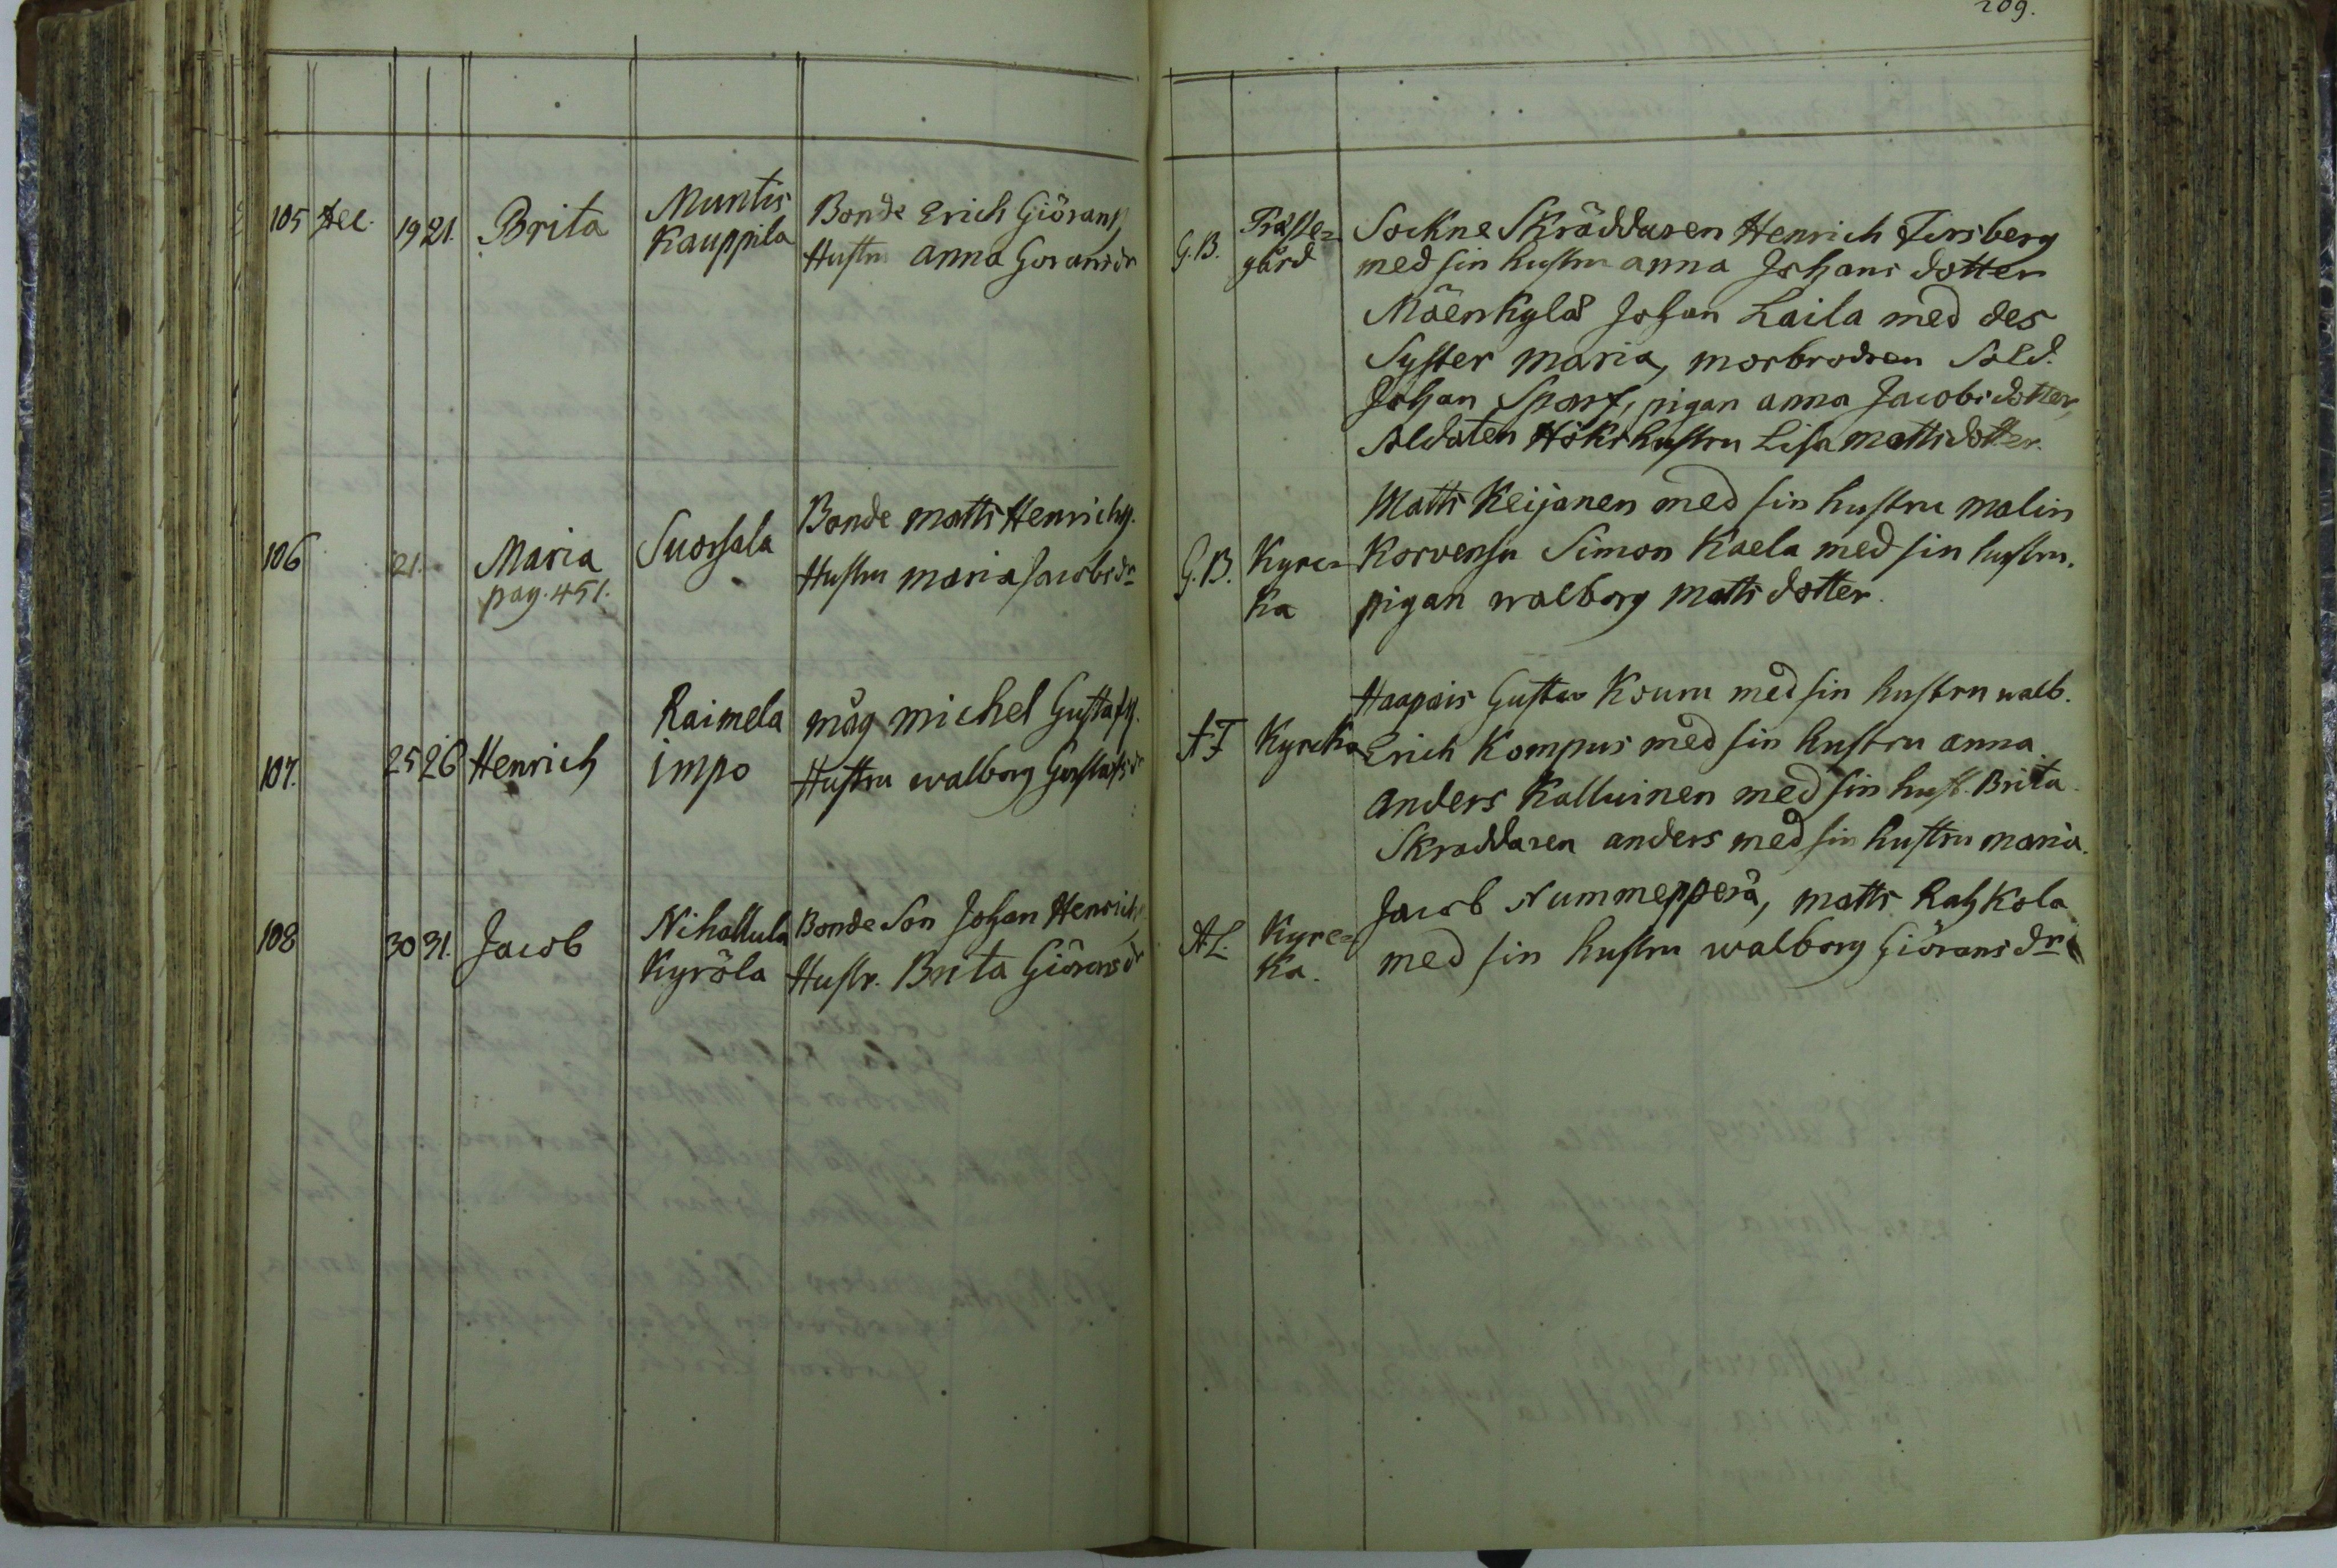 209.
105 Dec. 19 21. Brita Muntis Kauppila Bonde Erich Giöranss, Hustru anna Goransdr
G.B. Präste=gård Sockne Skräddaren Henrich Firsberg
med sin hustru anna Johans dotter
Mäenkylä Johan Laila med des
Syster maria, morbrodren Sold.
Johan Sparf, pigan anna Jacobsdotter,
soldaten Höks hustru Lisa mattsdotter.
106 21. Maria pag. 451. Suorsala Bonde matts Henrichss. Hustru maria Jacobsdr
G.B. Kyrc=ka Matts Keijanen med sin hustru malin
Korvensu Simon Kaela med sin hustru.
pigan walborg matts dotter.
107. 25 26 Henrich Raimela impo måg michel Gustafss. Hustru walborg Gustafsdr
A F Kyrcka Haapais Gustav Kouru med sin hustru walb.
Erich Kompus med sin hustru anna
anders Kalluinen med sin hust. Brita
Skraddaren anders med sin hustru maria.
108 30 31. Jacob Nihattula Kyröla Bonde Son Johan Henrichs Hustr. Brita Giöransdr
AL. Kyrc=ka. Jacob Nummepperä, matts Rahkola
med sin hustru walborg Giöransdr